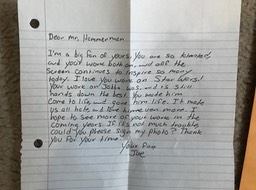 Dear Mr. Hammerman
I'm a big fan of yours. You are so talented
and your work both on, and off the
Screen continues to inspire so many
today. I love you work on Star Wars!
Your work on Jabba was, and is still
hands down the best. You made him
Come to life, and gave him life. It made
us all hate and love him even more. I
hope to See more of your work in the
Coming years. If its not much trouble
could you please sign my photo? Thank
you for your time!
Your Fan
Joe